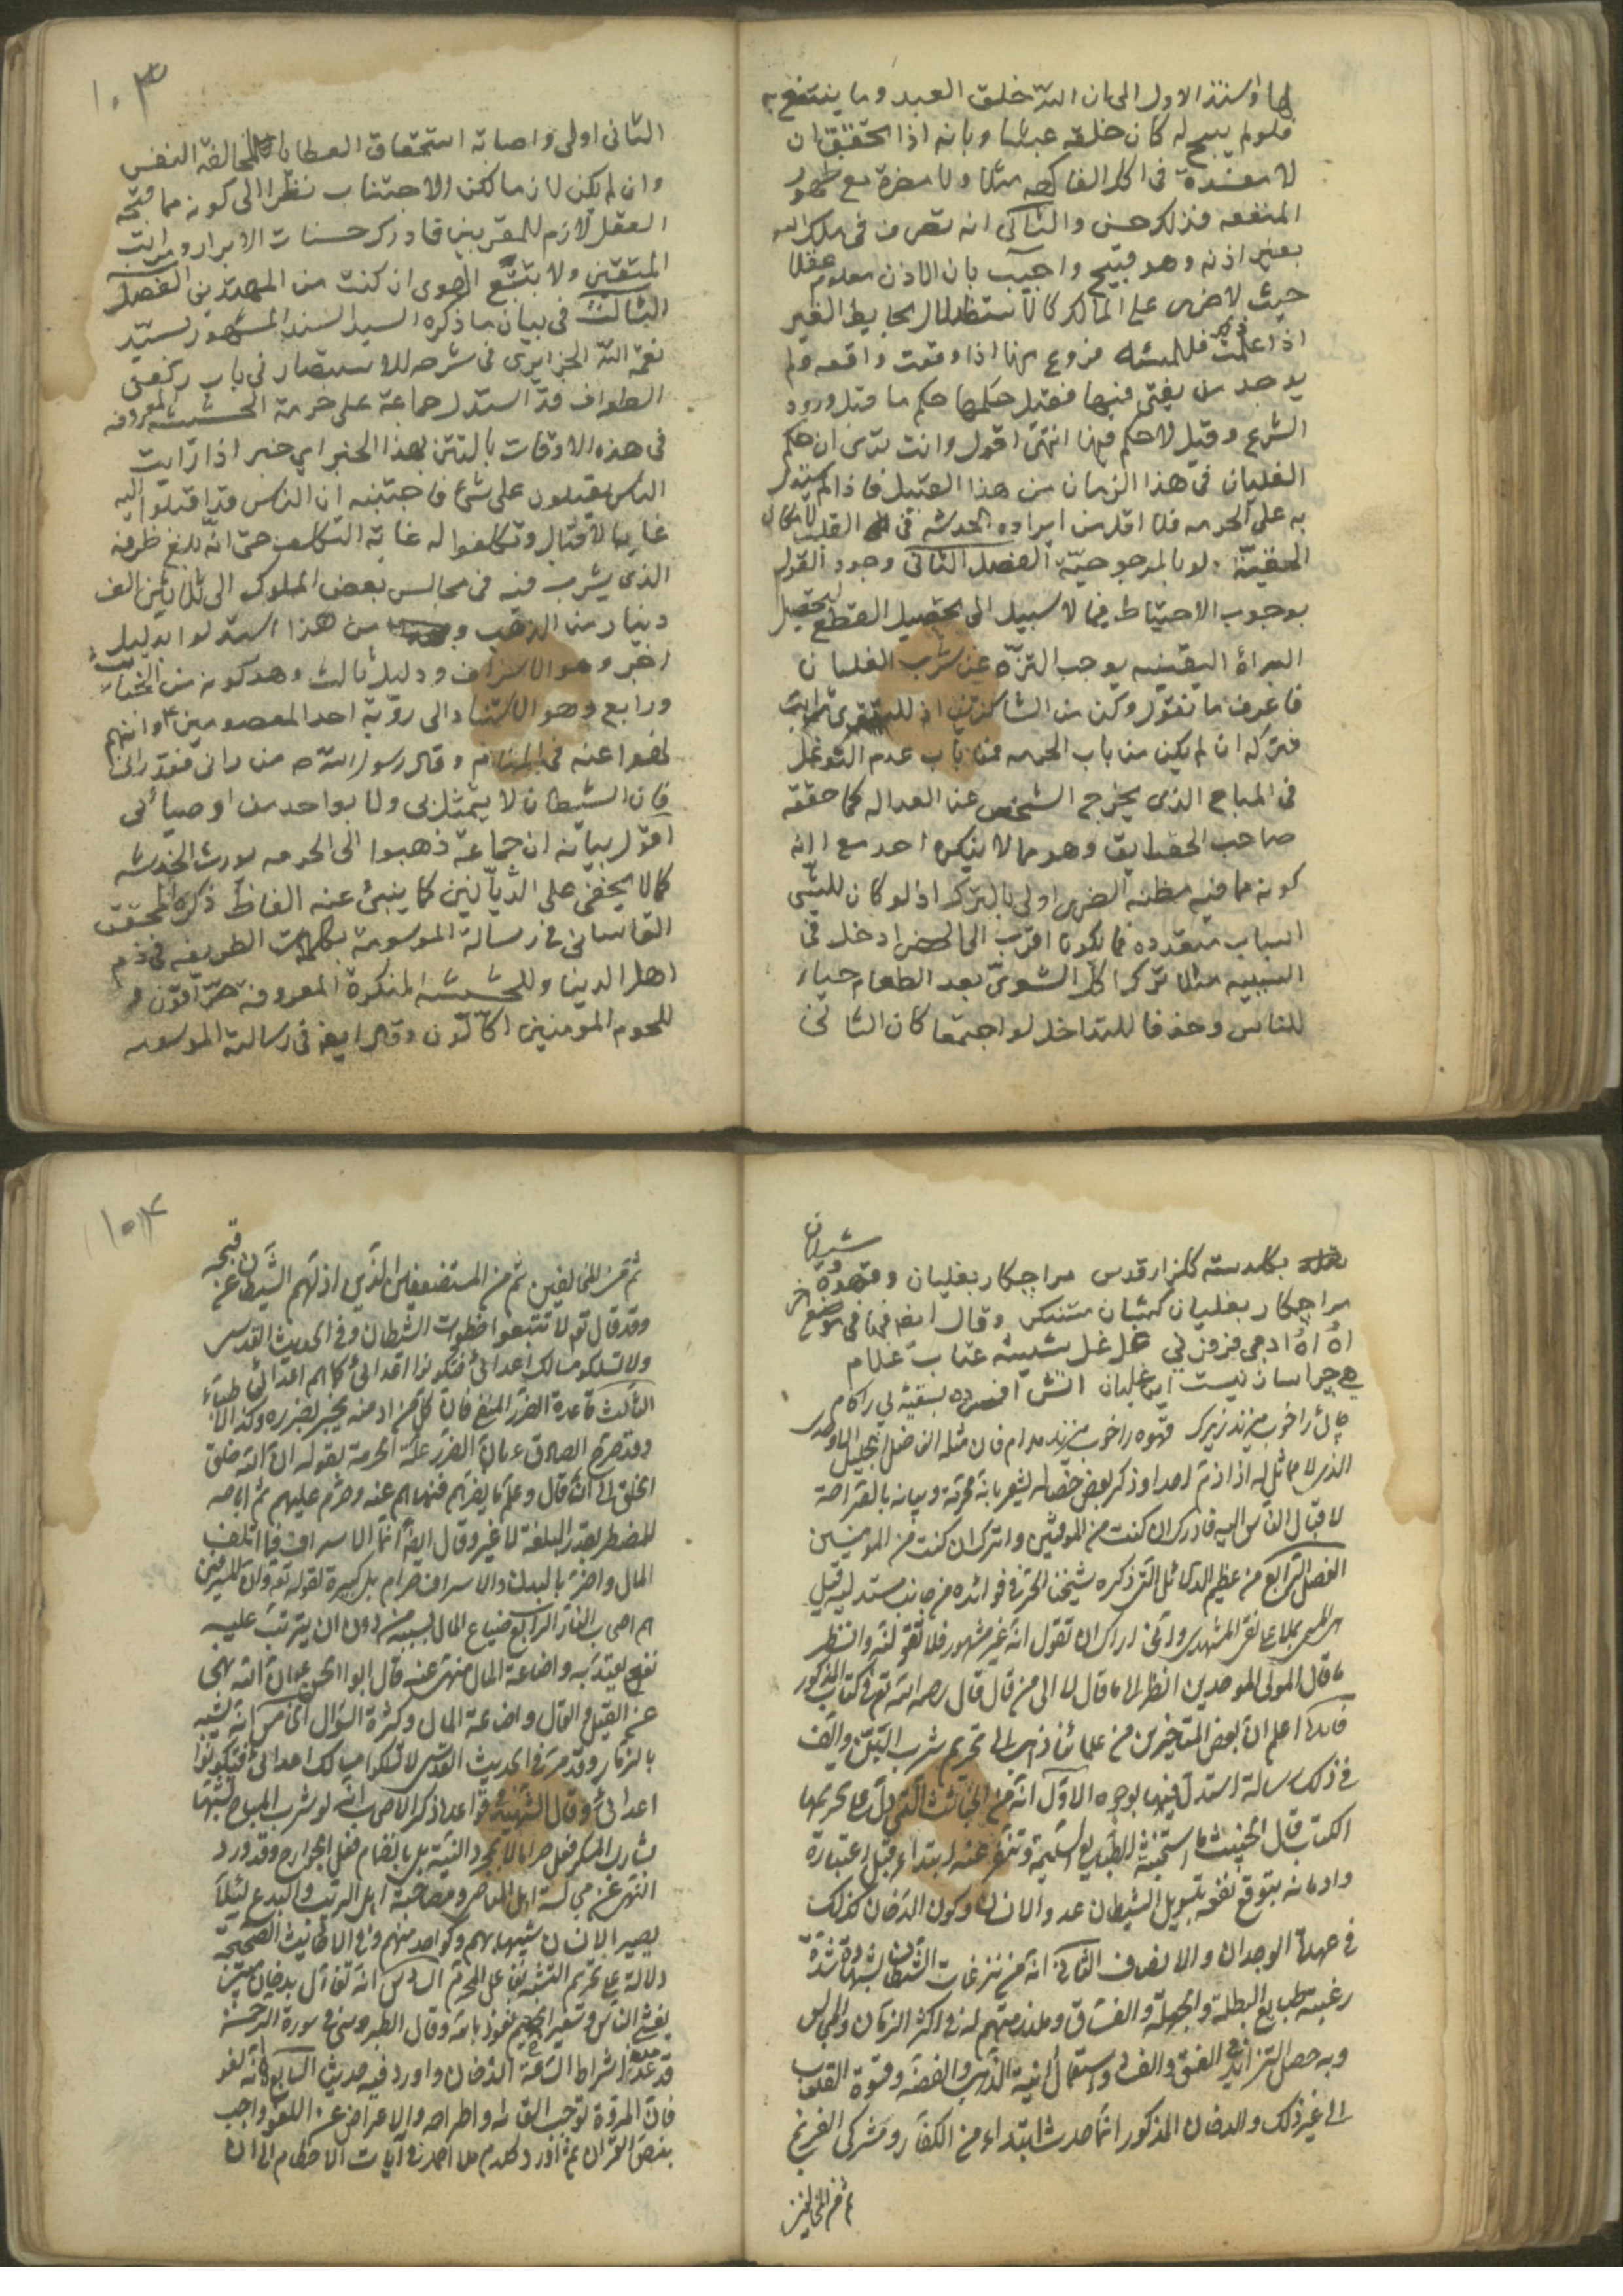 لها واستند الاول الى ان الله خلق العبد وما ينتفع به
فلو لم يبح له كان خلقه عبثا وبانه اذا تحقق ان
لا مفسدة فى اكل الفاكهه مثلا ولا مضرة مع ظهور
المنفعه فذلك حسن والثانى انه تصرف فى ملك الله
بغير اذنه وهو قبيح واجيب بان الاذن معلوم عقلا
حيث لا ضرر على المالك كالاستظلال بحايط الغير
اذا علمت فللمسئله فروع منها اذا وقعت واقعه ولم
يوجد من يفتى فيها فقيل حكمها حكم ما قبل ورود
الشرع وقيل لا حكم فيها انتهى اقول وانت ترى ان حكم
الغليان فى هذا الزمان من هذا القبيل فاذا لم يستدل
به على الحرمه فلا اقل من ايراده الخدشه فى القلب
لو بالمرجوحيّة الفصل الثانى وجود القول
بوجوب الاحتياط فيما لا سبيل الى تحصيل القطع لتحصيل
البراة اليقينيه يوجب التنزّه عن شرب الغليان
فاعرف ما نقول وكن من الشاكرين
فتركه ان لم يكن من باب الحرمه فمن باب عدم التوغل
فى المباح الذى يخرج الشخص عن العداله كما حققه
صاحب الحقايق وهو مما لا ينكره احد مع انه
كونه مما فيه مظنه الضرر اولى بالترك اذ لو كان للشى
اسباب متعدده فما يكون اقرب الى ادخل فى
السببيه مثلا ترك اكل الشوىّ بعد الطعام حياء
للناس وخوفا للتداخل لو اجتمعا كان الثانى
١٠٣
الثانى اولى واصابة استحقاق العطايا لمخالفة النفس
وان لم يكن لازما لكن الاجتناب نظرا الى كونه مما قبّحه
العقل لازم للمقربين فادرك حسنات الابرار ومراتب
المتقين ولا تتبّع الهوى ان كنت من المهتدين الفصل
الثالث فى بيان ما ذكره السيد السند المشهور بسيّد
نعمة الله الجزايرى فى شرحه للاستبصار فى باب ركعتى
الطواف قد استدل جماعة على حرمة الحشيشه المعروفه
فى هذه الاوقات بالتتن بهذا الخبر اى خبر اذا رايت
الناس يقبلون على شئ فاجتنبه ان الناس قد اقبلوا اليه
غاية الاقبال وتكلفوا له غاية التكلف حتى انّه بلغ ظرفه
الذى يشرب فيه فى مجالس بعض الملوك الى ثلاثين الف
دينار من الذهب من هذا استدلوا بدليل
اخر وهو الاسراف ودليل ثالث وهو كونه من الخبائث
ورابع وهو الاستناد الى رؤية احد المعصومين ع وانهم
نهوا عنه فى المنام وقال رسول الله ص من رانى فقد رانى
فان الشيطان لا يتمثل بى ولا بواحد من اوصيائى
اقول بيانه ان جماعة ذهبوا الى الحرمه يورث الخدشه
كما لا يخفى على كما ينبئ عنه الفاظ ذكره المحقق
القاسانى فى رسالة الموسومة بكلمات الطريفه فى ذم
اهل الدنيا وللحشيشه المنكرة المعروفة حرّاقون و
للحوم المومنين اكّالون وقال ايضا فى رسالته الموسومه
بگلدسته گلزار قدس مرا چکار بغلیان وقهوه شیران
مرا چکار بغلیان وقال ايضا فى موضع اخر
نیست این غلیان اتش افسرده
قهوه را خوب میزند مدام فان مثله الفاضل الجليل
الذى لا مماثل له اذا ذمّ احدا وذكر بعض خصاله يشعر بانه محرّمة وبيانه بالصراحة
لاقبال الناس اليه فادرك ان كنت من الموقنين واترك ان كنت من المومنين
الفصل الرابع من عظيم الدلائل الّتى ذكره شيخنا الحرّ فى فوائده
المسمى بملا على نقى المشهدى واياك ان تقول انه غير مشهور فلا تقولنّه وانظر
ما قال المولى الموحدين انظر الى ما قال لا الى من قال قال رحمه الله تع فى كتاب المذكور
فائدة اعلم ان بعض المتاخرين من علمائنا ذهب الى تحريم شرب التتن والّف
فى ذلك رسالة استدل فيها بوجوه الاوّل انّه من الخبائث الّتى دلّ على تحريمها
الكتاب قال الخبيث ما استخبثه الطبايع السليمة وتنفر عنه ابتداء قبل اعتباره
وادمانه بتوقع نفعه بتسويل الشيطان عدو الانسان وكون الدخان كذلك
فى عهدة الوجدان والانصاف الثانى انّه من نزغات الشيطان بشهادة شدة
رغبة طبايع البطلة والجهلة والفسّاق وملازمتهم له فى اكثر الزمان والمجالس
وبه حصل التزايد فى الفسق والفساد واستعمال انية الذهب والفضة وقسوة القلوب
الى غير ذلك والدخان المذكور انّما حدث ابتداء من الكفّار ومشركى الفرنج
ثم من المخالفين
١٠٤
ثم من المخالفين ثم من المستضعفين الّذين اذلّهم الشيطان عن قبحه
وقد قال تع لا تتبعوا خطوات الشيطان وفى الحديث القدسى
ولا تسلكوا مسالك اعدائى فتكونوا اعدائى كما هم اعدائى
الثالث قاعدة الضرر المنفى فانّ كلّ من ادمنه يخبر بضرره وكذا الاطبّاء
وقد صرّح الصادق ع بان الضرر علّة الحرمة بقوله ان الله خلق
الخلق الى ان قال وعلم ما يضرّهم فنهاهم عنه وحرّم عليهم ثم اباحه
للمضطر بقدر البلغة لا غير وقال ايضا انّما الاسراف فيما اتلف
المال واضرّ بالبدن والاسراف حرام بل كبيرة لقوله تع وان المسرفين
هم اصحاب النار الرابع ضياع المال بسببه من دون ان يترتب عليه
نفع يعتدّ به واضاعة المال منهىّ عنه قال ابو الحسن ع ان الله نهى
عن القيل والقال واضاعة المال وكثرة السؤال الخامس انّه تشبّه
بالكفار وقد مرّ فى الحديث القدسى لا تسلكوا مسالك اعدائى فتكونوا
اعدائى وقال الشهيد فى قواعده ذكر الاصحاب انّه لو شرب المباح تشبّها
بشارب المسكر فعل حراما لا بمجرد النية بل بانضمام فعل الجوارح وقد ورد
النهى عن مجالسة اهل المعاصى ومصاحبة اهل الريب والبدع لئلا
يصير الانسان شبيها بهم وكواحد منهم وفى الاحاديث الصحيحة
دلالة على تحريم التشبّه بفاعل المحرّم السادس انّه تفأل بدخان مبين
يغشى الناس نعوذ بالله وقال الطبرسى فى سورة الدخان
قد عدّ من اشراط الساعة الدخان واورد فيه حديث السابع انّه لغو
فان المروّة توجب القائه واطراحه والاعراض عن اللغو واجب
بنص القران ثم اورد كلام ملا احمد فى آيات الاحكام الى ان